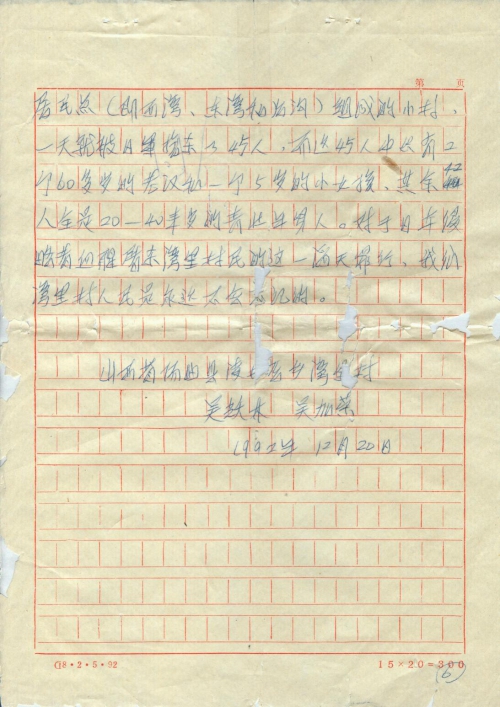 第 页
居民点（即西湾、东湾和后沟）组成的小村，
一天就被日军惨杀了45人，而这45人中只有2
个60多岁的老汉和一个5岁的小女孩，其余42
人全是20—40来岁的青壮年男人。对于日军侵
湾里村民的这一滔天罪行，我们
湾里村人民是永远不会忘记的。
山西省阳曲县凌井店乡湾里村
吴扶木 吴加荣
1992年 12月20日
(18·2·5·92
15×20=300
(6)